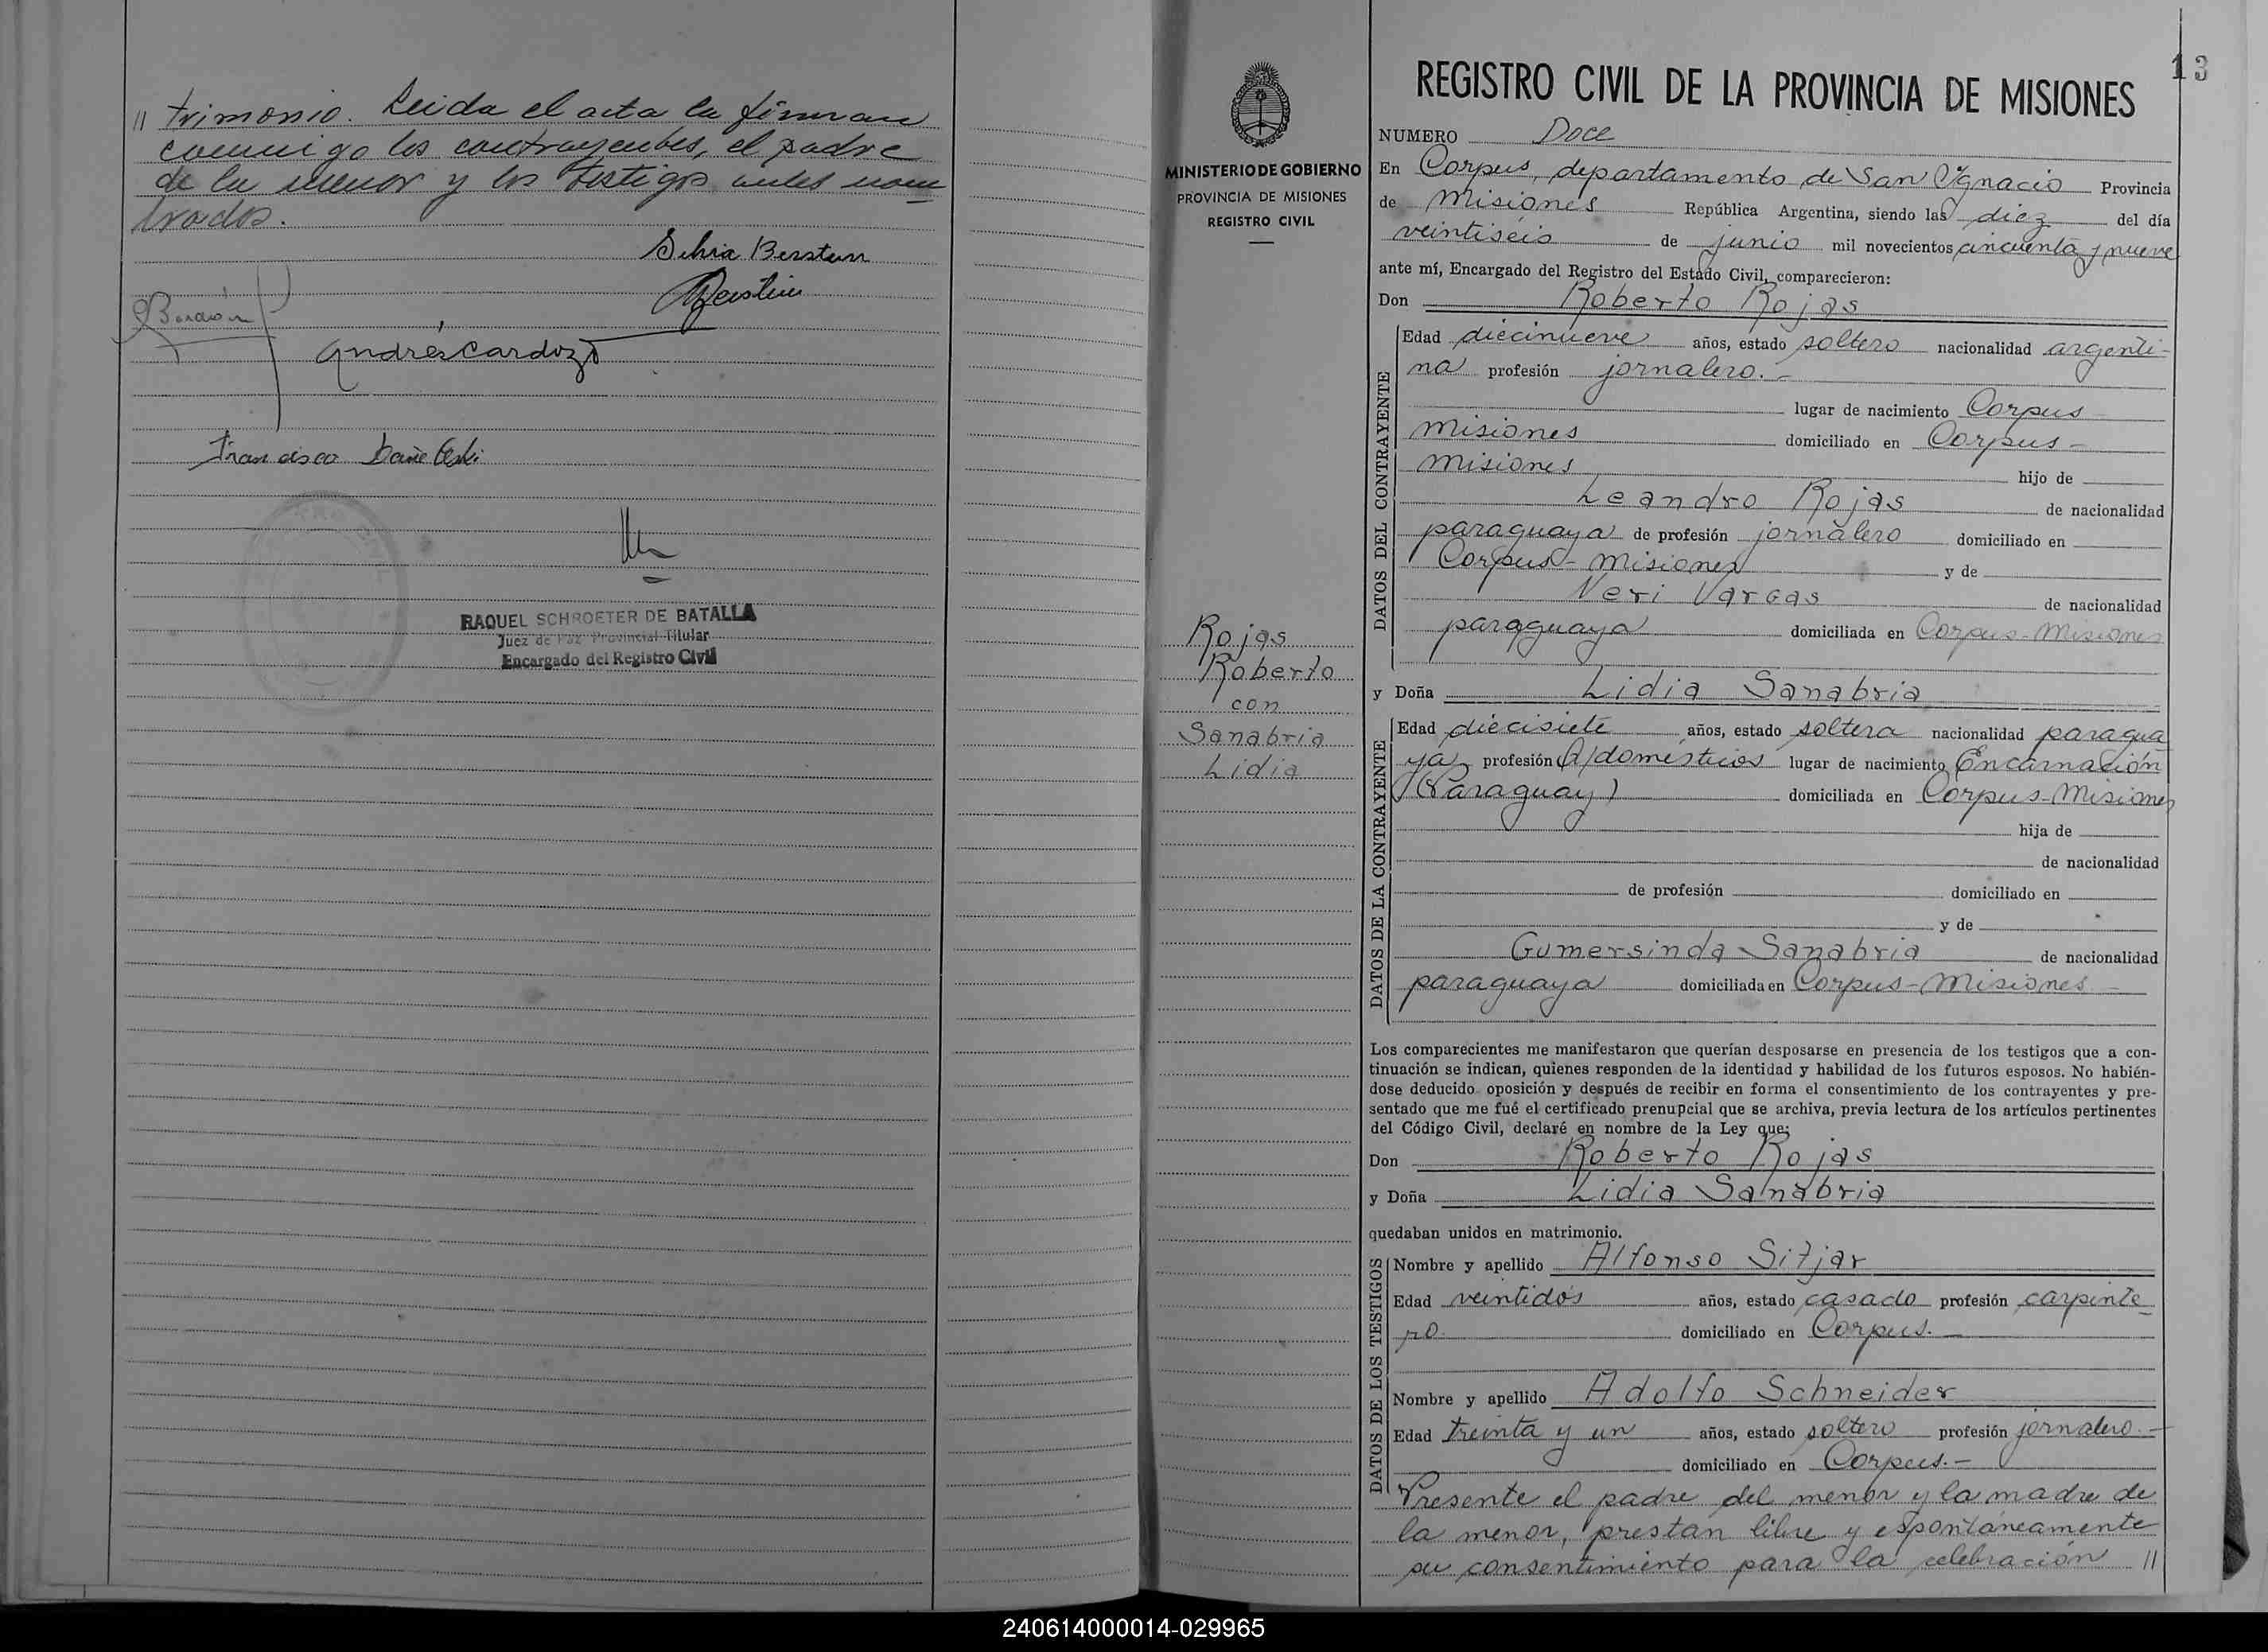 // trimonio. Leida el acta la firman
conmigo los contrayentes, el padre
de la menor y los testigos antes nom
brados.
Silvia Berstein
Andrés Cardozo
Francisco
RAQUEL SCHROETER DE BATALLA
Juez de Paz Provincial Titular
Encargado del Registro Civil
MINISTERIO DE GOBIERNO
PROVINCIA DE MISIONES
REGISTRO CIVIL
Rojas
Roberto
con
Sanabria
Lidia
13
REGISTRO CIVIL DE LA PROVINCIA DE MISIONES
NUMERO Doce
En Corpus, departamento de San Ignacio Provincia
de Misiones República Argentina, siendo las diez del día
veintiseis de junio mil novecientos cincuenta y nueve
ante mí, Encargado del Registro del Estado Civil, comparecieron:
Don Roberto Rojas
DATOS DEL CONTRAYENTE
Edad diecinueve años, estado soltero nacionalidad argenti-
na profesión jornalero.-
lugar de nacimiento Corpus
Misiones domiciliado en Corpus-
Misiones hijo de
Leandro Rojas de nacionalidad
paraguaya de profesión jornalero domiciliado en
Corpus - Misiones y de
Neri Vargas de nacionalidad
paraguaya domiciliada en Corpus-Misiones
y Doña Lidia Sanabria
DATOS DE LA CONTRAYENTE
Edad diecisiete años, estado soltera nacionalidad paragua
ya profesión Q/domésticos lugar de nacimiento Encarnación
(Paraguay) domiciliada en Corpus-Misiones
hija de
de nacionalidad
de profesión domiciliado en
y de
Gumersinda Sanabria de nacionalidad
paraguaya domiciliada en Corpus-Misiones-
Los comparecientes me manifestaron que querían desposarse en presencia de los testigos que a con-
tinuación se indican, quienes responden de la identidad y habilidad de los futuros esposos. No habién-
dose deducido oposición y después de recibir en forma el consentimiento de los contrayentes y pre-
sentado que me fué el certificado prenupcial que se archiva, previa lectura de los artículos pertinentes
del Código Civil, declaré en nombre de la Ley que:
Don Roberto Rojas
y Doña Lidia Sanabria
quedaban unidos en matrimonio.
DATOS DE LOS TESTIGOS
Nombre y apellido Alfonso Sitjar
Edad veintidós años, estado casado profesión carpinte
ro. domiciliado en Corpus.-
Nombre y apellido Adolfo Schneider
Edad treinta y un años, estado soltero profesión jornalero.-
domiciliado en Corpus.-
Presente el padre del menor y la madre de
la menor, prestan libre y espontáneamente
su consentimiento para la celebración //
240614000014-029965